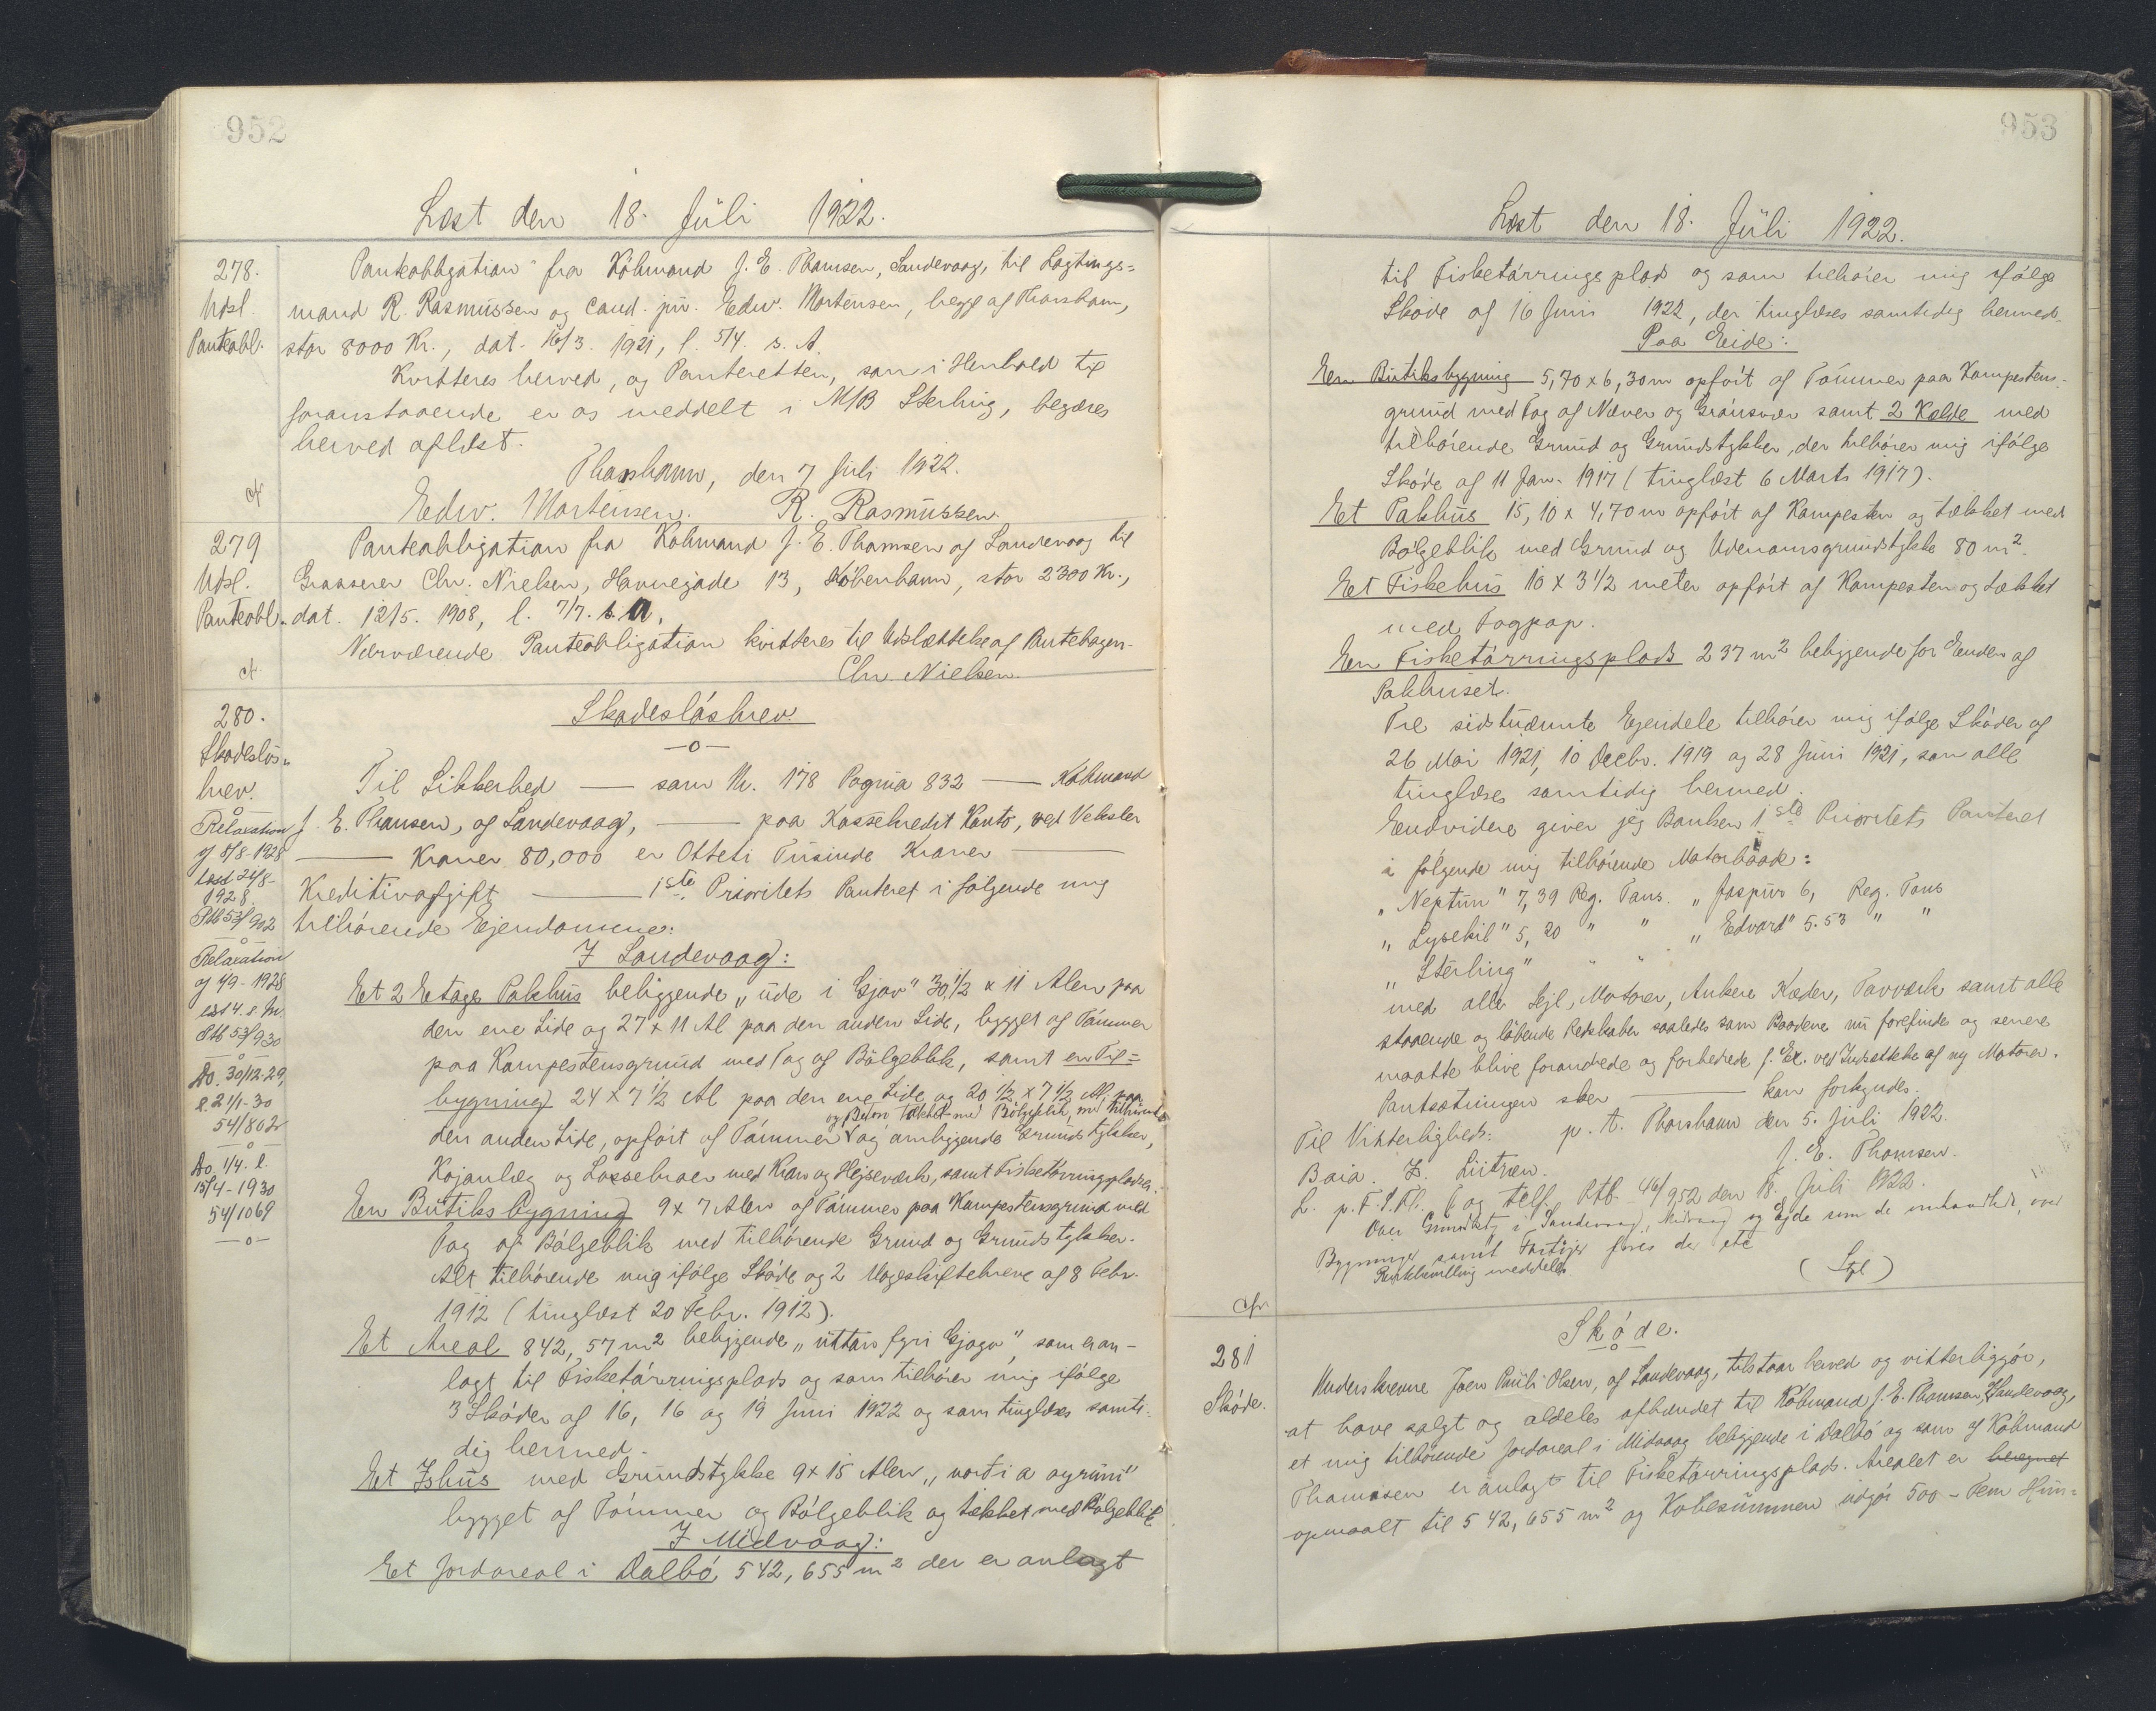 952
Læst den 18. Juli 1922.
278.
Udsl.
Panteobl.
Panteobligation fra Købmand J. E. Thomsen, Sandevaag, til Lagtings=
mand R. Rasmussen og cand. jur. Edw. Mortensen, begge af Thorshavn,
stor 8000 Kr., dat. 16/3. 1921, l. 5/4. s. A.
Kvitteres herved, og Panteretten, som i Henhold til
foranstaaende er os meddelt i M/B Sterling, begæres
herved aflæst.
Thorshavn, den 7 Juli 1922.
Edw. Mortensen. R. Rasmussen.
cf
279
Udsl.
Panteobl.
Panteobligation fra Købmand J. E. Thomsen af Sandevaag til
Grosserer Chr. Nielsen, Havnegade 13, København, stor 2300 Kr.,
dat. 12/5. 1908, l. 7/7. s. A.
Nærværende Panteobligation kvitteres til Udslættelse af Pantebogen.
Chr. Nielsen.
cf.
280.
Skadesløs-
brev.
Skadesløsbrev
—o—
Til Sikkerhed — som Nr. 178 Pagina 832 — Købmand
J. E. Thomsen, af Sandevaag, — paa Kassekredit Konto, ved Veksler
— Kroner 80,000 er Otteti Tusinde Kroner —
Kreditivafgift — 1ste Prioritets Panteret i følgende mig
tilhørende Ejendomme:
o
Relaxation
af 8/8-1928
læst 24/8-
1928.
Ptb 53/902
—o—
Relaxation
af 4/9-1928
læst 4. s. M.
Ptb 53/930
—o—
Do. 30/12-29,
l. 2/1-30
54/802
—o—
Do. 1/4. l.
15/4-1930
54/1069
—o—
I Sandevaag:
Et 2 Etage Pakhus beliggende „ude i Gjov" 30 1/2 x 11 Alen paa
den ene Side og 27 x 11 Al paa den anden Side, bygget af Tømmer
paa Kampestensgrund med Tag af Bølgeblik, samt en Til=
bygning 24 x 7 1/2 Al paa den ene Side og 20 1/2 x 7 1/2 Al. paa
og Beton tækket med Bølgeblik, med tilhørende
den anden Side, opført af Tømmer og omliggende Grundstykker,
Kajanlæg og Lossebroer med Kran og Hejseværk, samt Fisketørringspladser.
En Butiksbygning 9 x 7 Alen af Tømmer paa Kampestensgrund med
Tag af Bølgeblik med tilhørende Grund og Grundstykker.
Alt tilhørende mig ifølge Skøde og 2 Mageskiftebreve af 8 Febr.
1912 (tinglæst 20 Febr. 1912).
Et Areal 842,57 m2 beliggende „uttan fyri Gjogv", som er an-
lagt til Fisketørringsplads og som tilhører mig ifølge
3 Skøder af 16, 16 og 19 Juni 1922 og som tinglæses samti-
dig hermed.
Et Ishus med Grundstykke 9 x 15 Alen „norði a oyruni"
bygget af Tømmer og Bølgeblik og tækket med Bølgeblik
I Midvaag:
Et Jordareal i Dalbø 542,655 m2 der er anlagt
953
Læst den 18. Juli 1922.
til Fisketørringsplads og som tilhører mig ifølge
Skøde af 16 Juni 1922, der tinglæses samtidig hermed.
Paa Eide:
Een Butiksbygning 5,70 x 6,30 m opført af Tømmer paa Kampestens-
grund med Tag af Næver og Grønsvær samt 2 Kælde med
tilhørende Grund og Grundstykker, der tilhører mig ifølge
Skøde af 11 Jan. 1917 (tinglæst 6 Marts 1917).
Et Pakhus 15,10 x 4,70 m opført af Kampesten og tækket med
Bølgeblik med Grund og Udenomsgrundstykke 80 m2.
Et Fiskehus 10 x 3 1/2 meter opført af Kampesten og tækket
med Tagpap.
Een Fisketørringsplads 237 m2 beliggende for Enden af
Pakhuset.
Tre sidstnævnte Ejendele tilhører mig ifølge Skøder af
26 Mai 1921, 10 Decbr. 1919 og 28 Juni 1921, som alle
tinglæses samtidig hermed.
Endvidere giver jeg Banken 1ste Prioritets Panteret
i følgende mig tilhørende Motorbaade:
„Neptun" 7,39 Reg. Tons. „Jaspur 6, Reg. Tons
„Lysekil" 5,20 " " „Edvard" 5.53 " "
„Sterling" " "
med alle Sejl, Motorer, Ankere Kæder, Tovværk samt alle
staaende og løbende Redskaber saaledes som Baadene nu forefindes og senere
maatte blive forandrede og forbedrede f. Ex. ved Indsættelse af ny Motorer.
Pantsætningen sker — kan forkyndes.
Til Vitterlighed: p. t. Thorshavn den 5. Juli 1922.
J. E. Thomsen.
L. p. F. S. Th. og tilf. Ptb. 46/952 den 18. Juli 1922.
Over Grundstk i Sandevaag, Midvaag og Ejde som de omhandlede, over
Bygninger samt Fartøjer føres der etc
meddeles
cfr
281
Skøde.
Skøde.
—o—
Underskrevne Joen Pauli Olsen, af Sandevaag, tilstaar herved og vitterliggør,
at have solgt og aldeles afhændet til Købmand J. E. Thomsen, Sandevaag,
et mig tilhørende Jordareal i Midvaag beliggende i Dalbø og som af Købmand
Thomsen er anlagt til Fisketørringsplads. Arealet er beregnet
opmaalt til 542,655 m2 og Købesummen udgør 500 - Fem Hun=